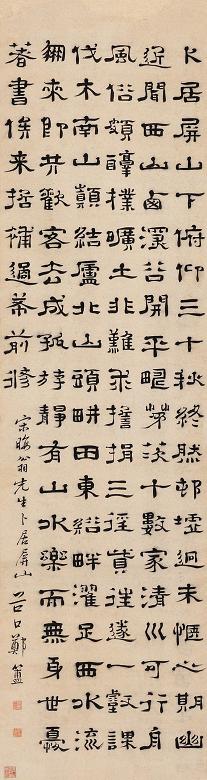 卜居屏山下俯仰三十秋終然邨墟迥未愜心期幽
近聞西山鹵深谷開平疇茅茨十數家清川可行舟
風俗頗醇樸曠土非難求誓捐三徑貲往遂一壑謀
伐木南山顛結廬北山頭畊田東谿畔濯足西水流
朋來即共歡客去成孤游靜有山水樂而無身世憂
著書俟来哲補過希前修
宋晦翁先生卜居屏山 谷口鄭簠